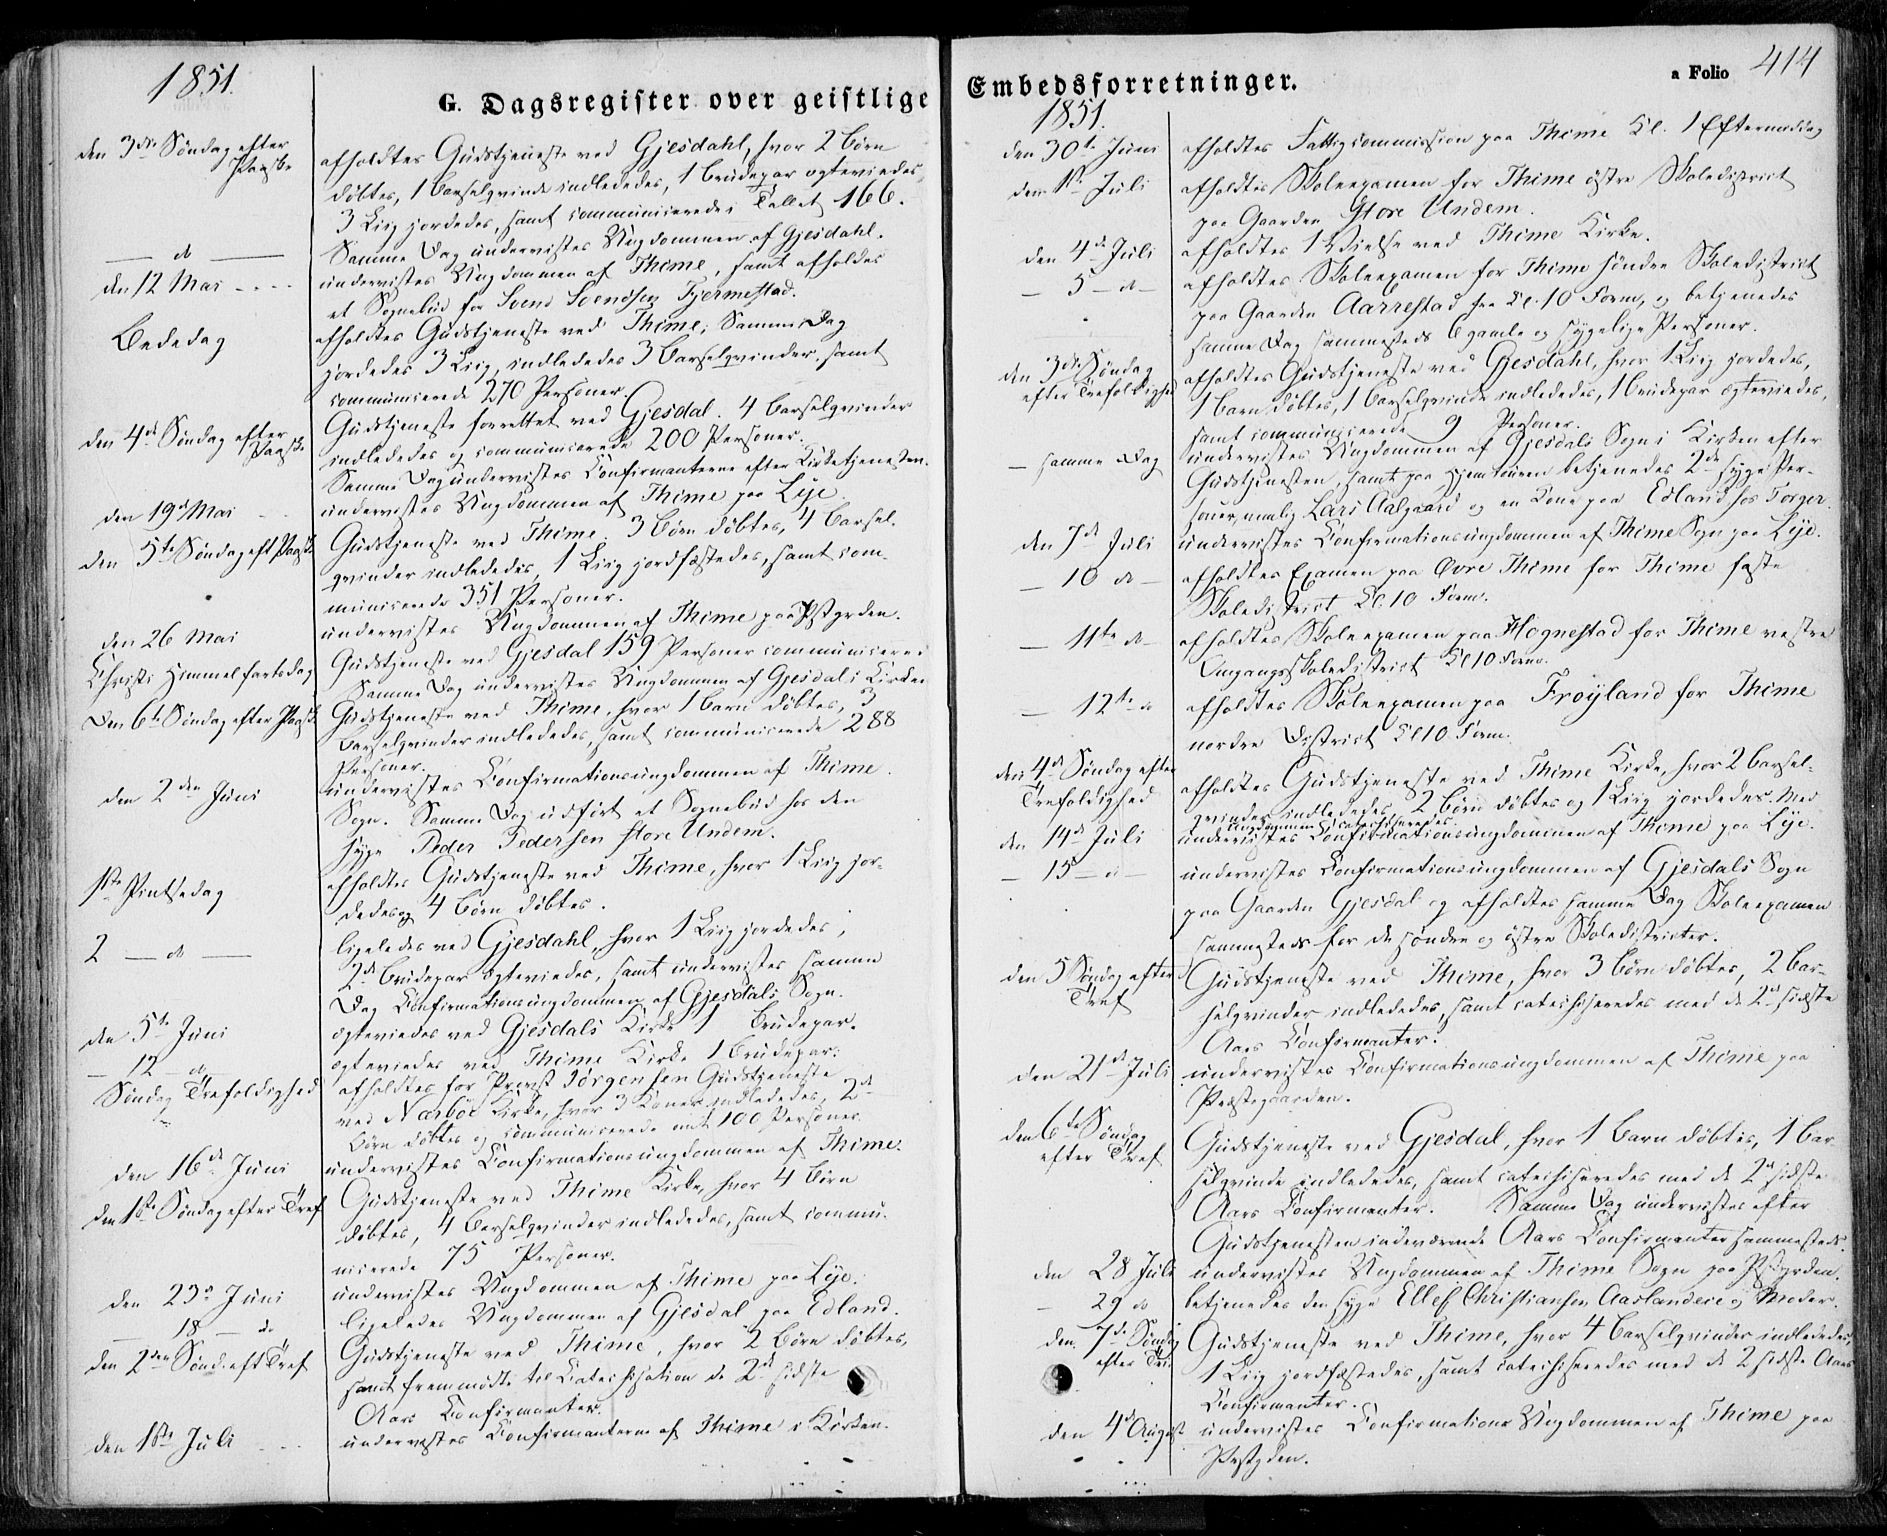 1851.
G. Dagsregister over geistlige
den 3die Søndag efter Paaske
afholdtes Gudstjeneste ved Gjesdahl, hvor 2 Børn
døbtes, 1 Barselqvinde indlededes, 1 Brudepar egteviedes
3 Liig jordedes, samt communicerede i Tallet 166.
— do —
Samme Dag undervistes Ungdommen af Gjesdahl.
den 12 Mai
undervistes Ungdommen af Thime, samt afholdes
et Sognebud for Svend Svendsen Tjermestad.
Bededag
afholdtes Gudstjeneste ved Thime, Samme Dag
jordedes 3 Liig, indlededes 3 Barselqvinder, samt
communicerede 270 Personer.
den 4de Søndag efter Paaske
Gudstjeneste forrettet ved Gjesdal. 4 Barselqvinder
indlededes og communicerede 200 Personer.
Samme Dag undervistes Confirmanterne efter Kirketjenesten.
den 19de Mai
undervistes Ungdommen af Thime paa Lye.
den 5te Søndag eft Paaske
Gudstjeneste ved Thime. 3 Børn døbtes, 4 Barsel-
qvinder indlededes, 1 Liig jordfæstedes, samt com-
municerede 351 Personer.
den 26 Mai
undervistes Ungdommen af Thime paa Pstgrden.
Christi Himmelfartsdag
Gudstjeneste ved Gjesdal 159 Personer communicerede
Samme Dag undervistes Ungdommen af Gjesdal i Kirken
Den 6te Søndag efter Paaske
Gudstjeneste ved Thime, hvor 1 Barn døbtes, 3
Barselqvinder indlededes, samt communicerede 288
Personer.
den 2den Juni
undervistes Confirmationsungdommen af Thime
Sogn. Samme Dag udført et Sognebud hos den
syge Peder Pedersen Store Undem.
1ste Pintsedag
afholdtes Gudstjeneste ved Thime, hvor 1 Liig jor-
dedes og 4 Børn døbtes.
2 — do —
ligeledes ved Gjesdahl, hvor 1 Liig jordedes,
2de Brudepar egteviedes, samt undervistes samme
Dag Confirmationsungdommen af Gjesdals Sogn.
den 5te Juni
egteviedes ved Gjesdals Kirke 1 Brudepar.
— 12 — do
egteviedes ved Thime Kirke 1 Brudepar.
Søndag Trefoldighed
afholdtes for Provst Jørgensen Gudstjeneste
ved Nærbøe Kirke, hvor 3 Koner indlededes, 2de
Børn døbtes og communicerede omt 100 Personer.
den 16de Juni
undervistes Confirmationsungdommen af Thime.
den 1ste Søndag efter Tref
Gudstjeneste ved Thime Kirke, hvor 4 Børn
døbtes, 4 Barselqvinder indlededes, samt commu-
nicerede 75 Personer.
den 23de Juni
undervistes Ungdommen af Thime paa Lye.
— 18 — do
ligeledes Ungdommen af Gjesdal paa Edland.
den 2den Sønd. eft Tref
Gudstjeneste ved Thime, hvor 2 Børn døbtes,
samt fremmødte til Catechisation de 2de sidste
Aars Confirmanter.
den 1ste Juli
undervistes Confirmanterne af Thime i Kirken.
Embedsforretninger.
a Folio 414
1851.
den 30te Juni
afholdtes Fattigcommission paa Thime Kl. 1 Eftermiddag
den 1ste Juli
afholdtes Skoleexamen for Thime østre Skoledistrict
paa Gaarden Store Undem.
den 4de Juli
afholdtes 1 Vielse ved Thime Kirke.
— 5 — do —
afholdtes Skoleexamen for Thime søndre Skoledistrict
paa Gaarden Aarrestad fra Kl. 10 Form, og betjenedes
samme Dag sammesteds 6 gamle og sygelige Personer.
den 3die Søndag efter Trefoldighed
afholdtes Gudstjeneste ved Gjesdahl, hvor 1 Liig jordedes,
1 Barn døbtes, 1 Barselqvinde indlededes, 1 Brudepar egteviedes,
samt communicerede 9 Personer.
— samme Dag
undervistes Ungdommen af Gjesdals Sogn i Kirken efter
Gudstjenesten, samt paa Hjemturen betjenedes 2de syge Per-
soner, nemlig Lars Aalgaard og en Kone paa Edland hos Torger.
den 7de Juli
undervistes Confirmationsungdommen af Thime Sogn paa Lye.
— 10 do —
afholdtes Examen paa Øvre Thime for Thime faste
Skoledistrict Kl. 10 Form.
— 11te do —
afholdtes Skoleexamen paa Hognestad for Thime vestre
Omgangsskoledistrict Kl 10 Form.
— 12te do
afholdtes Skoleexamen paa Frøyland for Thime
nordre District Kl 10 Form.
den 4de Søndag efter Trefoldighed
afholdtes Gudstjeneste ved Thime Kirke, hvor 2 Barsel-
qvinder indlededes, 2 Børn døbtes og 1 Liig jordedes. Med
Ungdommen catechiseredes.
den 14de Juli
undervistes Confirmationsungdommen af Thime paa Lye.
— 15 — do —
undervistes Confirmationsungdommen af Gjesdals Sogn
paa Gaarden Gjesdal og afholdtes samme Dag Skoleexamen
sammesteds for de søndre og østre Skoledistricter.
den 5 Søndag efter Tref
Gudstjeneste ved Thime, hvor 3 Børn døbtes, 2 Bar-
selqvinder indlededes, samt catechiseredes med de 2de sidste
Aars Confirmanter.
den 21de Juli
undervistes Confirmationsungdommen af Thime paa
Præstegaarden.
den 6te Søndag efter Tref
Gudstjeneste ved Gjesdal, hvor 1 Barn døbtes, 1 Bar-
selqvinde indlededes, samt catechiseredes med de 2de sidste
Aars Confirmanter. Samme Dag undervistes efter
Gudstjenesten indeværende Aars Confirmanter sammesteds.
den 28 Juli
undervistes Ungdommen af Thime Sogn paa Pstgrden.
— 29 do
betjenedes den syge Ellef Christiansen Aaslandeie og Moder.
den 7de Søndag efter Tref
Gudstjeneste ved Thime, hvor 4 Barselqvinder indlededes,
1 Liig jordfæstedes, samt catechiseredes med de 2 sidste Aars
Confirmanter.
den 4de August
undervistes Confirmations Ungdommen af Thime paa
Pstgden.